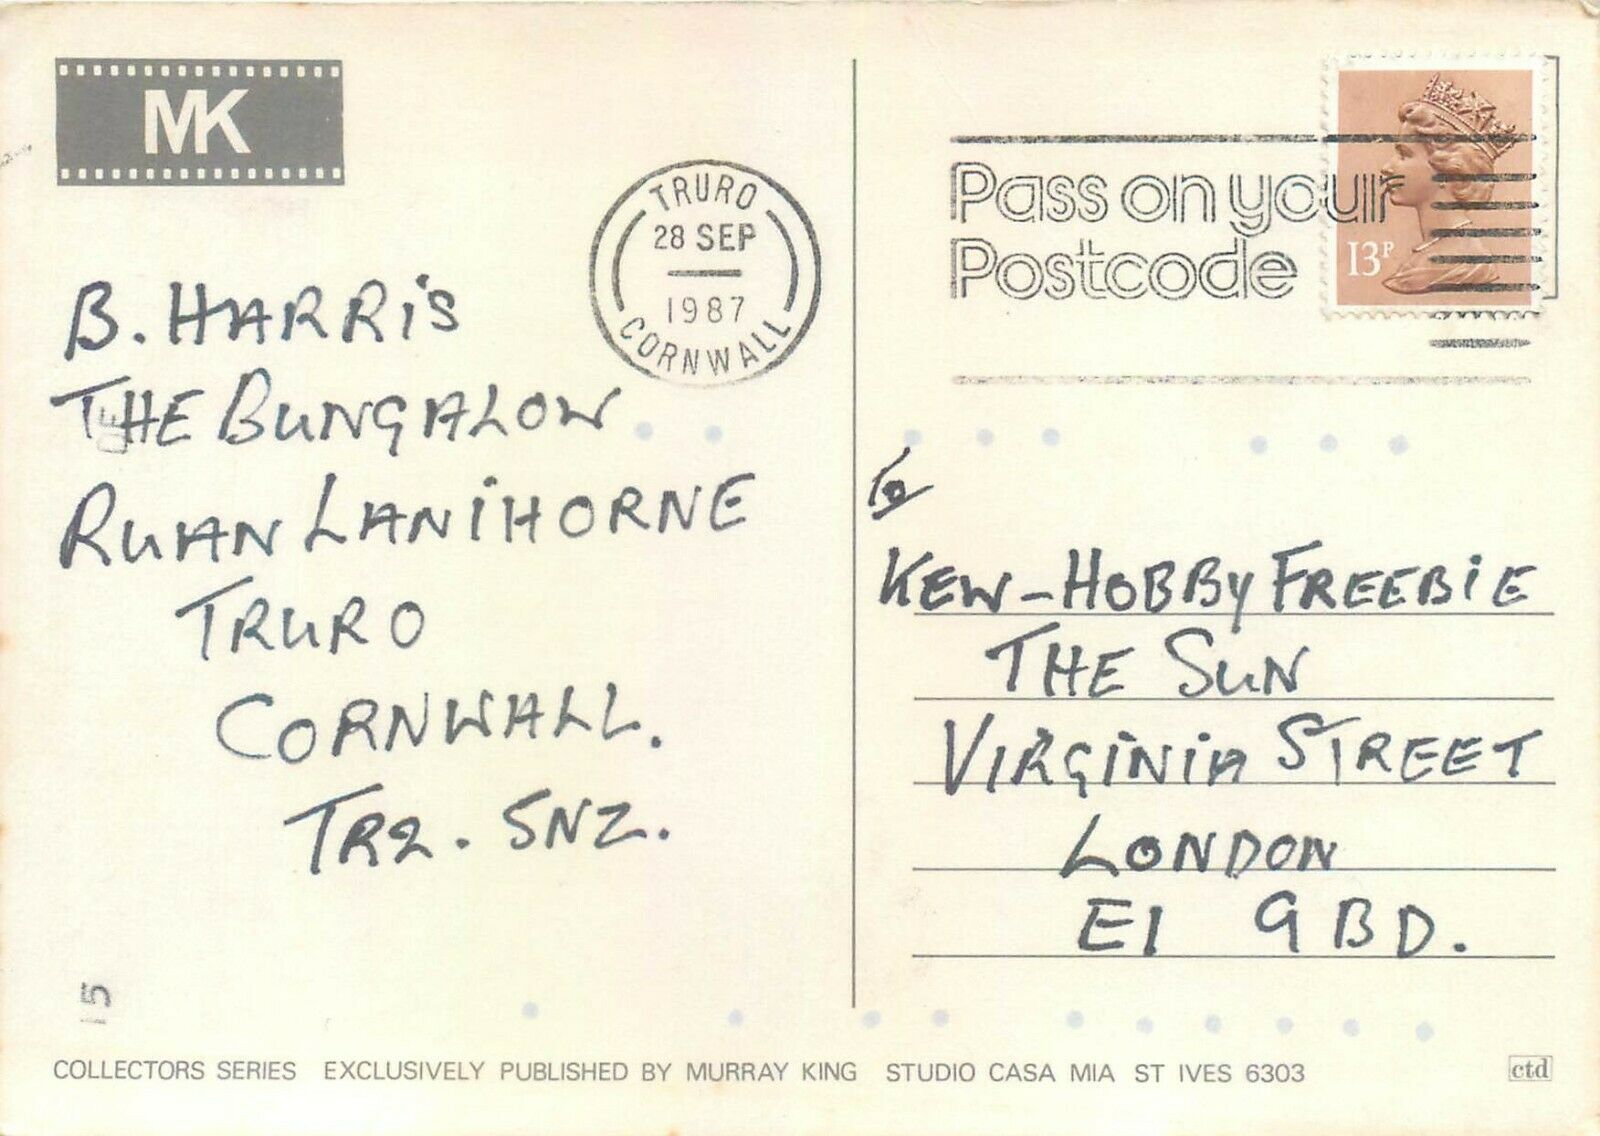 MK
TRURO
28 SEP
1987
CORNWALL
Pass on your
Postcode
13P
B. HARRiS
THE BUNGALOW
RUAN LANiHORNE
TRURO
CORNWALL.
TR2. 5NZ.
To
KEW-HOBBY FREEBiE
THE SUN
ViRGiNiA STREET
LONDON
E1 9BD.
15
COLLECTORS SERIES EXCLUSIVELY PUBLISHED BY MURRAY KING STUDIO CASA MIA ST IVES 6303
ctd